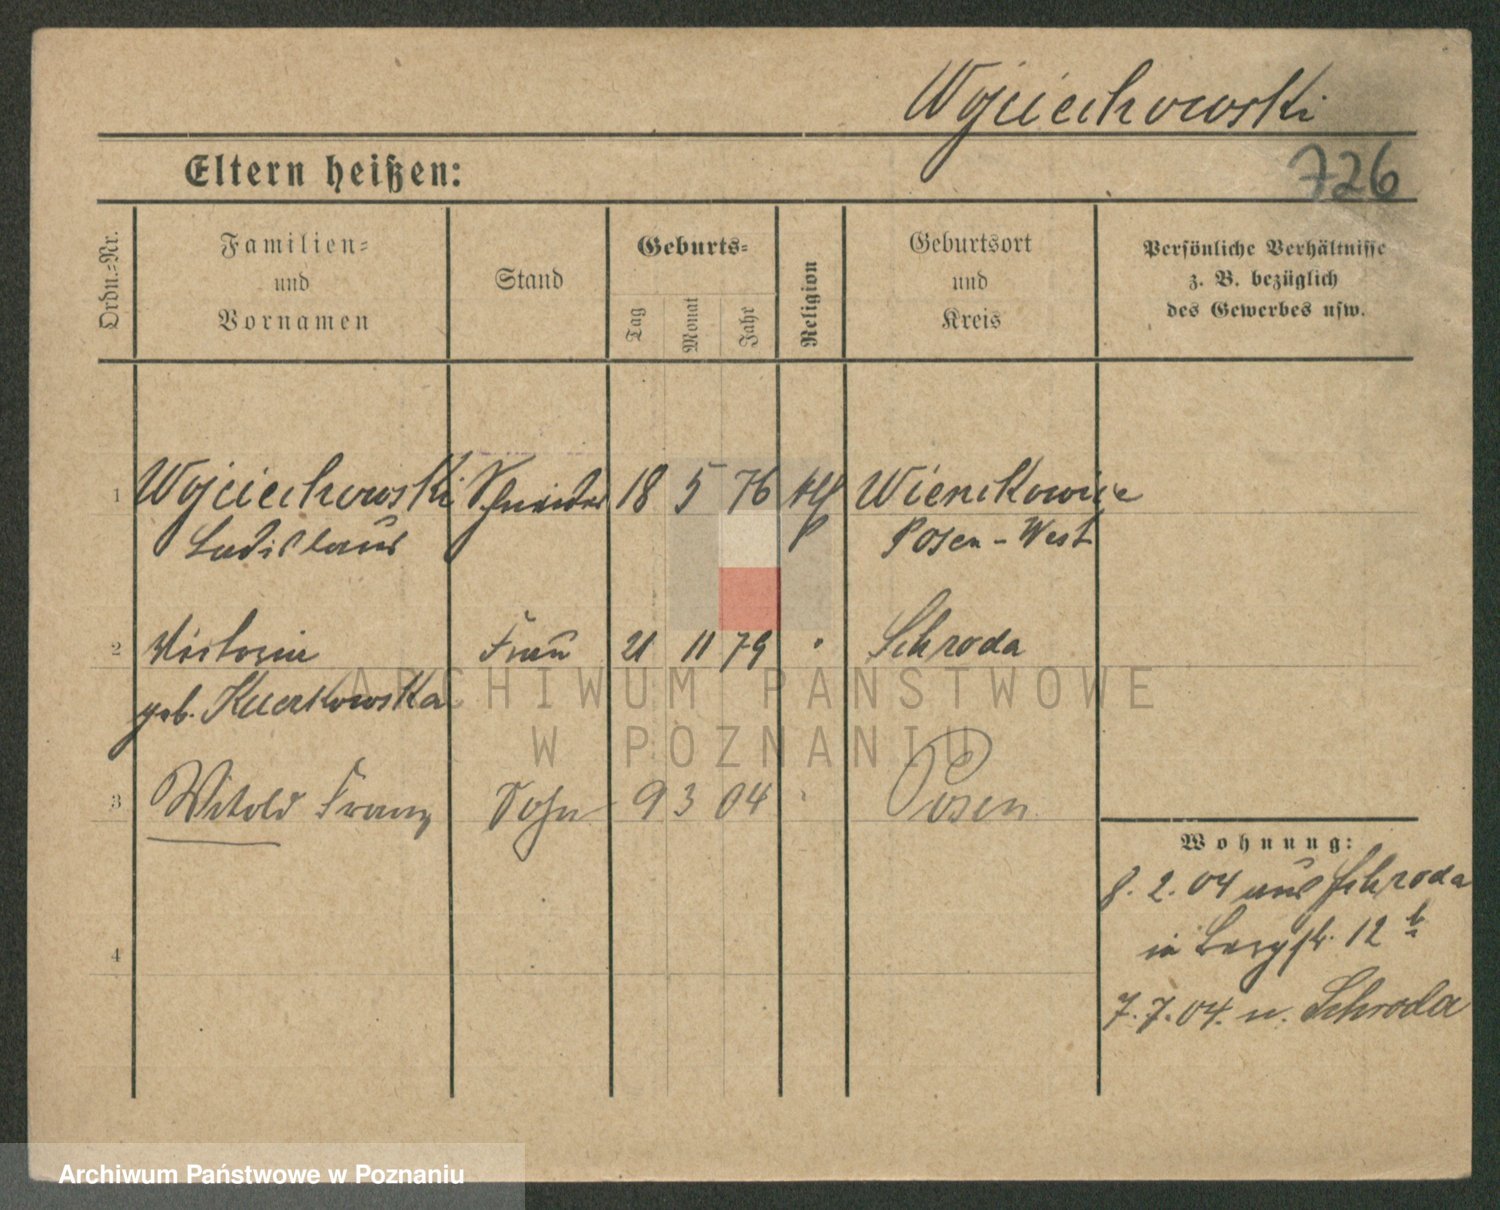 Wojciechowski
Eltern heißen:
726
Ordn.=Nr.
Familien=
und
Vornamen
Stand
Geburts=
Tag
Monat
Jahr
Religion
Geburtsort
und
Kreis
Persönliche Verhältnisse
z. B. bezüglich
des Gewerbes usw.
1 Wojciechowski Schneider 18 5 76 kth Wienckowice
Ladislaus Posen - West
2 Victoria Frau 21 11 79 " Schroda
geb. Kuczkowska
3 Witold Franz Sohn 9 3 04 " Posen
Wohnung:
8. 2. 04 aus Schroda
in Bergstr. 12 b
4
7. 7. 04. n. Schroda
ARCHIWUM PAŃSTWOWE
W POZNANIU
Archiwum Państwowe w Poznaniu